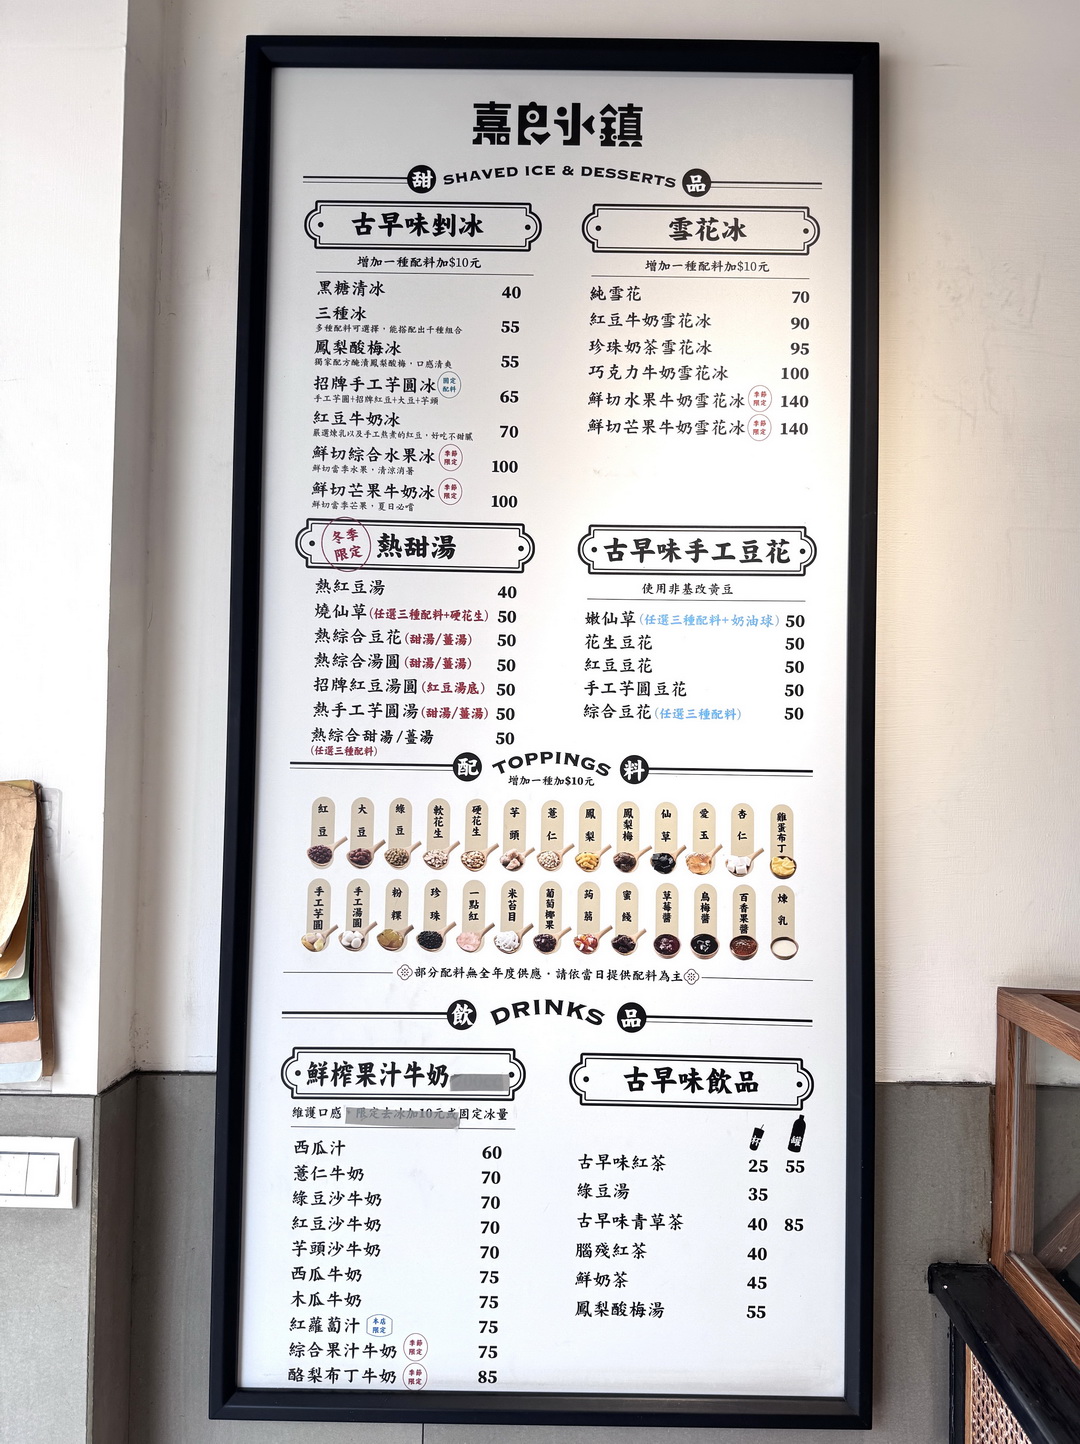 嘉良冰鎮
甜 SHAVED ICE & DESSERTS 品
古早味剉冰
增加一種配料加$10元
黑糖清冰 40
三種冰 55
多種配料可選擇，能搭配出千種組合
鳳梨酸梅冰 55
獨家配方醃漬鳳梨酸梅，口感清爽
招牌手工芋圓冰 固定配料 65
手工芋圓+招牌紅豆+大豆+芋頭
紅豆牛奶冰 70
嚴選煉乳以及手工熬煮的紅豆，好吃不甜膩
鮮切綜合水果冰 季節限定 100
鮮切當季水果，清涼消暑
鮮切芒果牛奶冰 季節限定 100
鮮切當季芒果，夏日必嚐
雪花冰
增加一種配料加$10元
純雪花 70
紅豆牛奶雪花冰 90
珍珠奶茶雪花冰 95
巧克力牛奶雪花冰 100
鮮切水果牛奶雪花冰 季節限定 140
鮮切芒果牛奶雪花冰 季節限定 140
冬季限定 熱甜湯
熱紅豆湯 40
燒仙草(任選三種配料+硬花生) 50
熱綜合豆花(甜湯/薑湯) 50
熱綜合湯圓(甜湯/薑湯) 50
招牌紅豆湯圓(紅豆湯底) 50
熱手工芋圓湯(甜湯/薑湯) 50
熱綜合甜湯/薑湯 50
(任選三種配料)
古早味手工豆花
使用非基改黃豆
嫩仙草(任選三種配料+奶油球) 50
花生豆花 50
紅豆豆花 50
手工芋圓豆花 50
綜合豆花(任選三種配料) 50
配 TOPPINGS 料
增加一種加$10元
紅豆 大豆 綠豆 軟花生 硬花生 芋頭 薏仁 鳳梨 鳳梨梅 仙草 愛玉 杏仁 雞蛋布丁
手工芋圓 手工湯圓 粉粿 珍珠 一點紅 米苔目 葡萄椰果 蒟蒻 蜜餞 草莓醬 烏梅醬 百香果醬 煉乳
部分配料無全年度供應，請依當日提供配料為主
飲 DRINKS 品
鮮榨果汁牛奶
維護口感，限定去冰加10元或固定冰量
西瓜汁 60
薏仁牛奶 70
綠豆沙牛奶 70
紅豆沙牛奶 70
芋頭沙牛奶 70
西瓜牛奶 75
木瓜牛奶 75
紅蘿蔔汁 本店限定 75
綜合果汁牛奶 季節限定 75
酪梨布丁牛奶 季節限定 85
古早味飲品
杯 罐
古早味紅茶 25 55
綠豆湯 35
古早味青草茶 40 85
腦殘紅茶 40
鮮奶茶 45
鳳梨酸梅湯 55